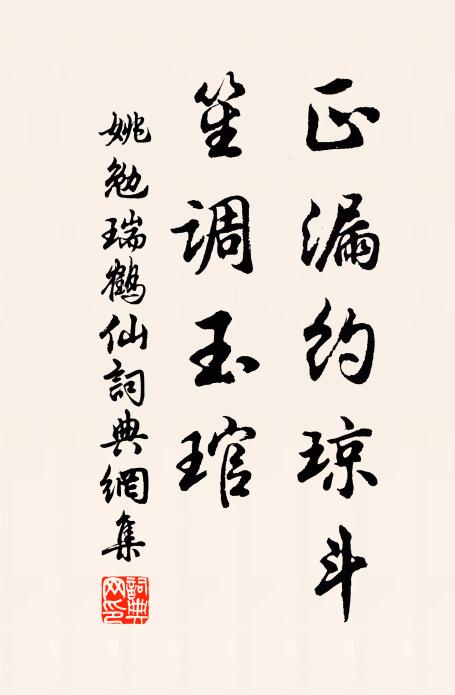 正漏约琼斗
笙调玉琯
姚勉瑞鶴仙詞典網集
詞典
网印